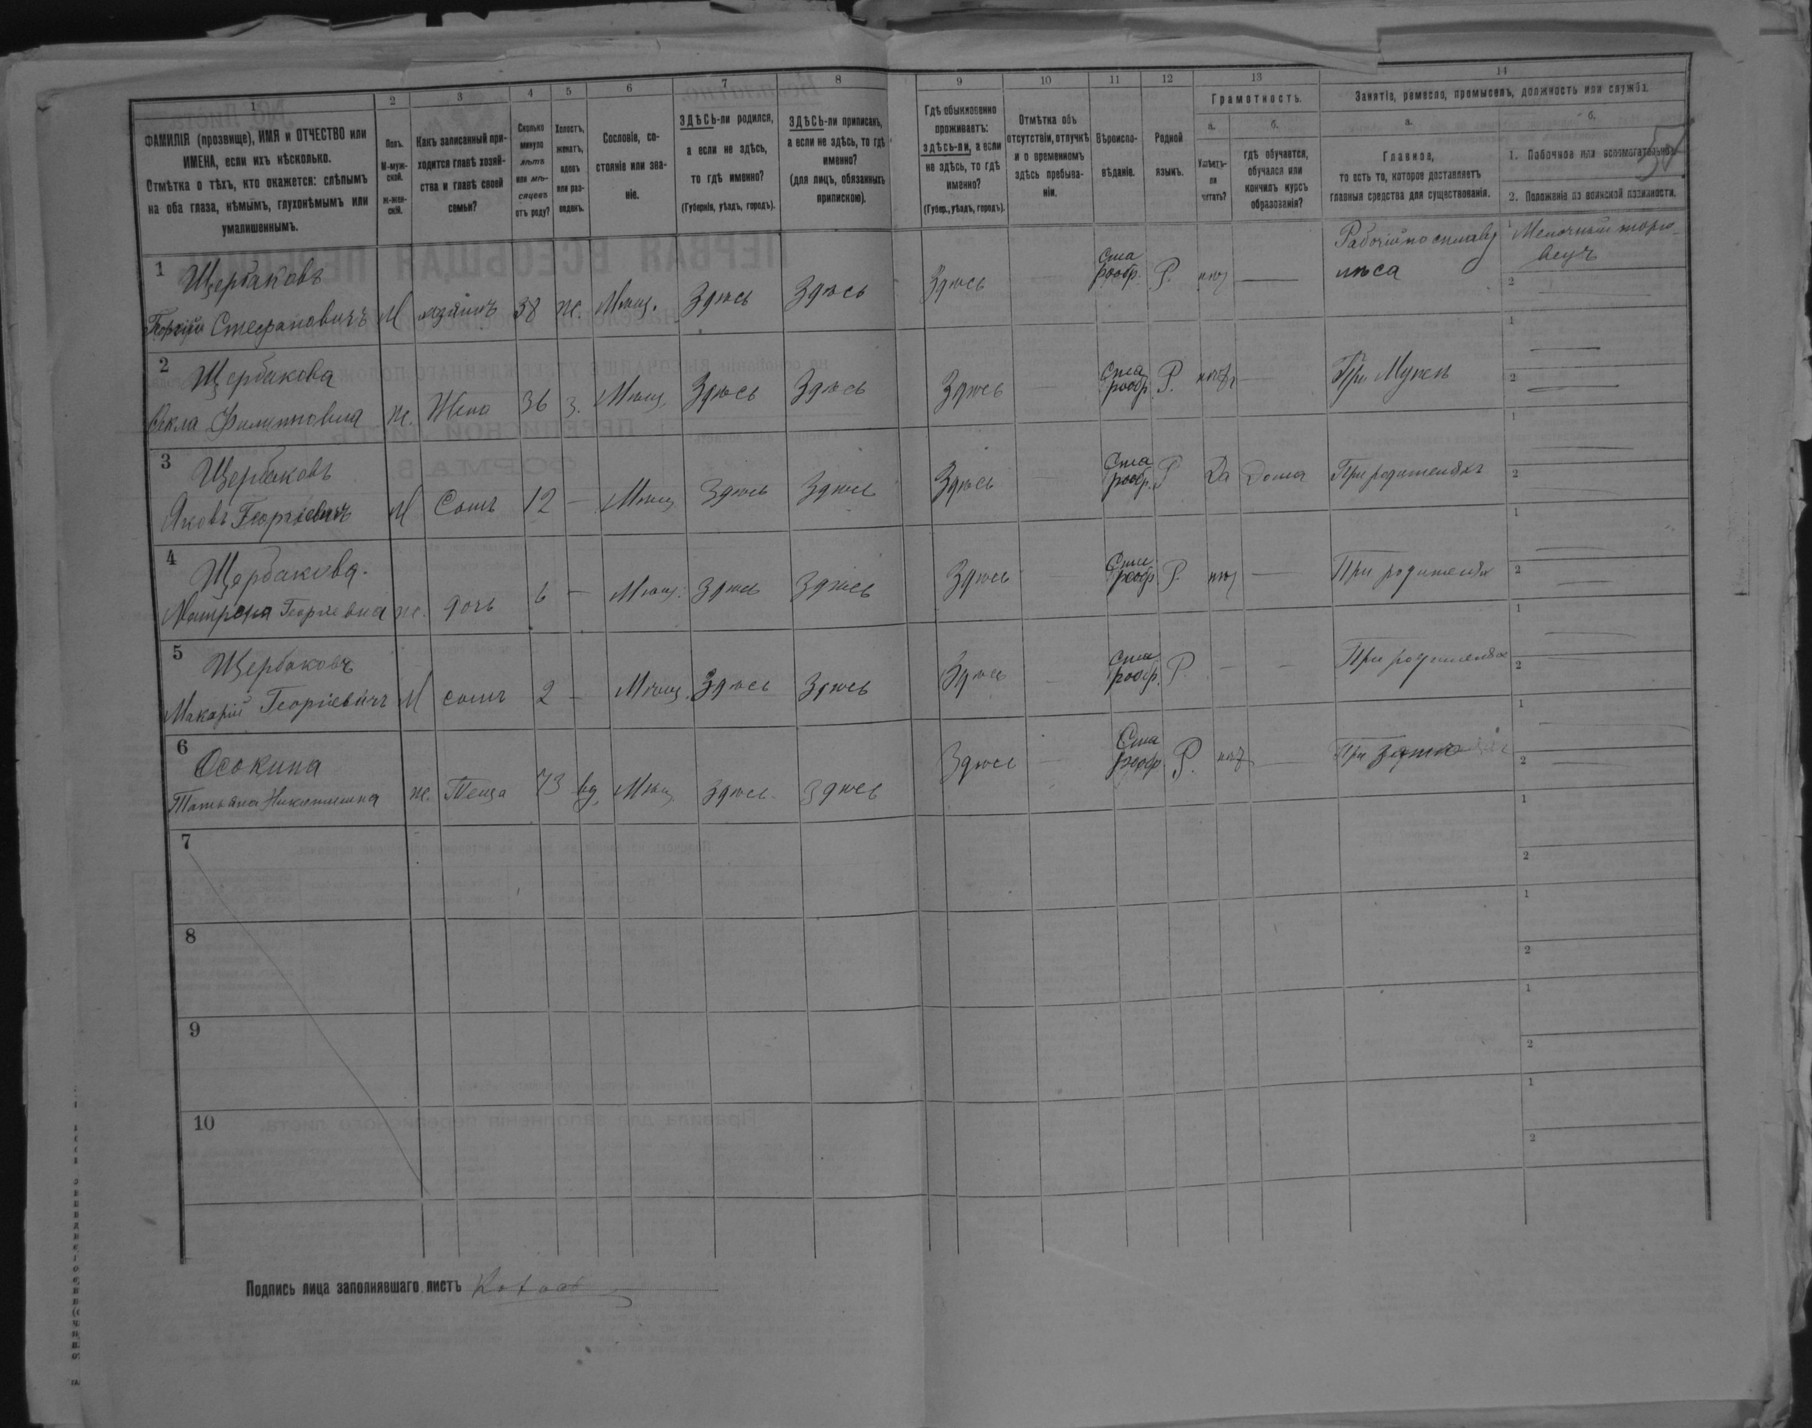 1
ФАМИЛІЯ (прозвище), ИМЯ и ОТЧЕСТВО или
ИМЕНА, если ихъ нѣсколько.
Отмѣтка о тѣхъ, кто окажется: слѣпымъ
на оба глаза, нѣмымъ, глухонѣмымъ или
умалишеннымъ.
2
Полъ.
М-муж-
ской.
ж-жен-
скій.
3
Какъ записанный при-
ходится главѣ хозяй-
ства и главѣ своей
семьи?
4
Сколько
минуло
лѣтъ
или мѣ-
сяцевъ
отъ роду?
5
Холостъ,
женатъ,
вдовъ
или раз-
веденъ.
6
Сословіе, со-
стояніе или зва-
ніе.
7
ЗДѢСЬ-ли родился,
а если не здѣсь,
то гдѣ именно?
(Губернія, уѣздъ, городъ).
8
ЗДѢСЬ-ли приписанъ,
а если не здѣсь, то гдѣ
именно?
(для лицъ, обязанныхъ
припискою).
9
Гдѣ обыкновенно
проживаетъ:
здѣсь-ли, а если
не здѣсь, то гдѣ
именно?
(Губер., уѣздъ, городъ).
10
Отмѣтка объ
отсутствіи, отлучкѣ
и о временномъ
здѣсь пребыва-
ніи.
11
Вѣроиспо-
вѣданіе.
12
Родной
языкъ.
13
Грамотность.
а.
Умѣетъ-
ли
читать?
б.
гдѣ обучается,
обучался или
кончилъ курсъ
образованія?
14
Занятіе, ремесло, промыселъ, должность или служба.
а.
Главное,
то есть то, которое доставляетъ
главныя средства для существованія.
б.
1. Побочное или вспомогательное.
2. Положеніе по воинской повинности.
1 Щербаковъ
Георгій Стефановичъ М хозяинъ 38 ж. Мѣщ. Здѣсь Здѣсь Здѣсь Старообр. Р. нѣтъ
Рабочій по сплаву
лѣса
1 Мелочный торго-
вецъ
2
2 Щербакова
Фекла Филипповна ж. Жена 36 з. Мѣщ. Здѣсь Здѣсь Здѣсь Старообр. Р. нѣтъ При Мужѣ
1
2
3 Щербаковъ
Яковъ Георгіевичъ М Сынъ 12 — Мѣщ Здѣсь Здѣсь Здѣсь Старообр. Р Да Дома При родителяхъ
1
2
4 Щербакова.
Матрена Георгіевна ж. дочь 6 — Мѣщ. Здѣсь Здѣсь Здѣсь Старообр. Р. нѣтъ При родителях
1
2
5 Щербаковъ
Макарій Георгіевичъ М сынъ 2 — Мѣщ. Здѣсь Здѣсь Здѣсь Старообр. Р. — — При родителях
1
2
6 Осокина
Татьяна Никитишна ж. Теща 73 вд. Мѣщ Здѣсь Здѣсь Здѣсь Старообр Р. нѣтъ При зятѣ
1
2
7
1
2
8
1
2
9
1
2
10
1
2
Подпись лица заполнявшаго листъ